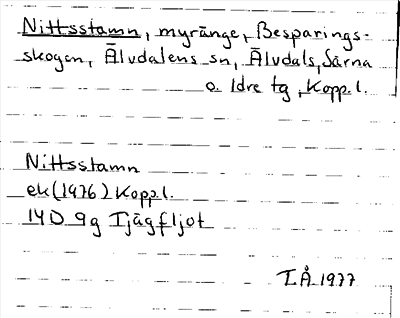 Nittsstamn, myränge, Besparings-
skogen, Älvdalens sn, Älvdals, Särna
o. Idre tg, Kopp l.
Nittsstamn
ek (1976) Kopp l.
14D 9g Tjågfljot
I.Å 1977